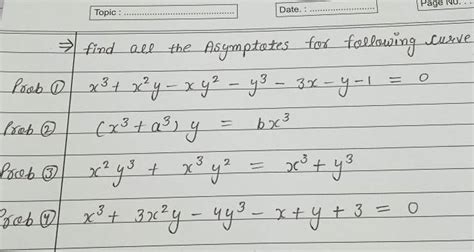 Topic : ........................ Date. : .................... Page No. . .
⇒ find all the Asymptotes for following curve
Prob ① x³ + x²y - xy² - y³ - 3x - y - 1 = 0
Prob ② (x³ + a³) y = bx³
Prob ③ x² y³ + x³ y² = x³ + y³
Prob ④ x³ + 3x²y - 4y³ - x + y + 3 = 0